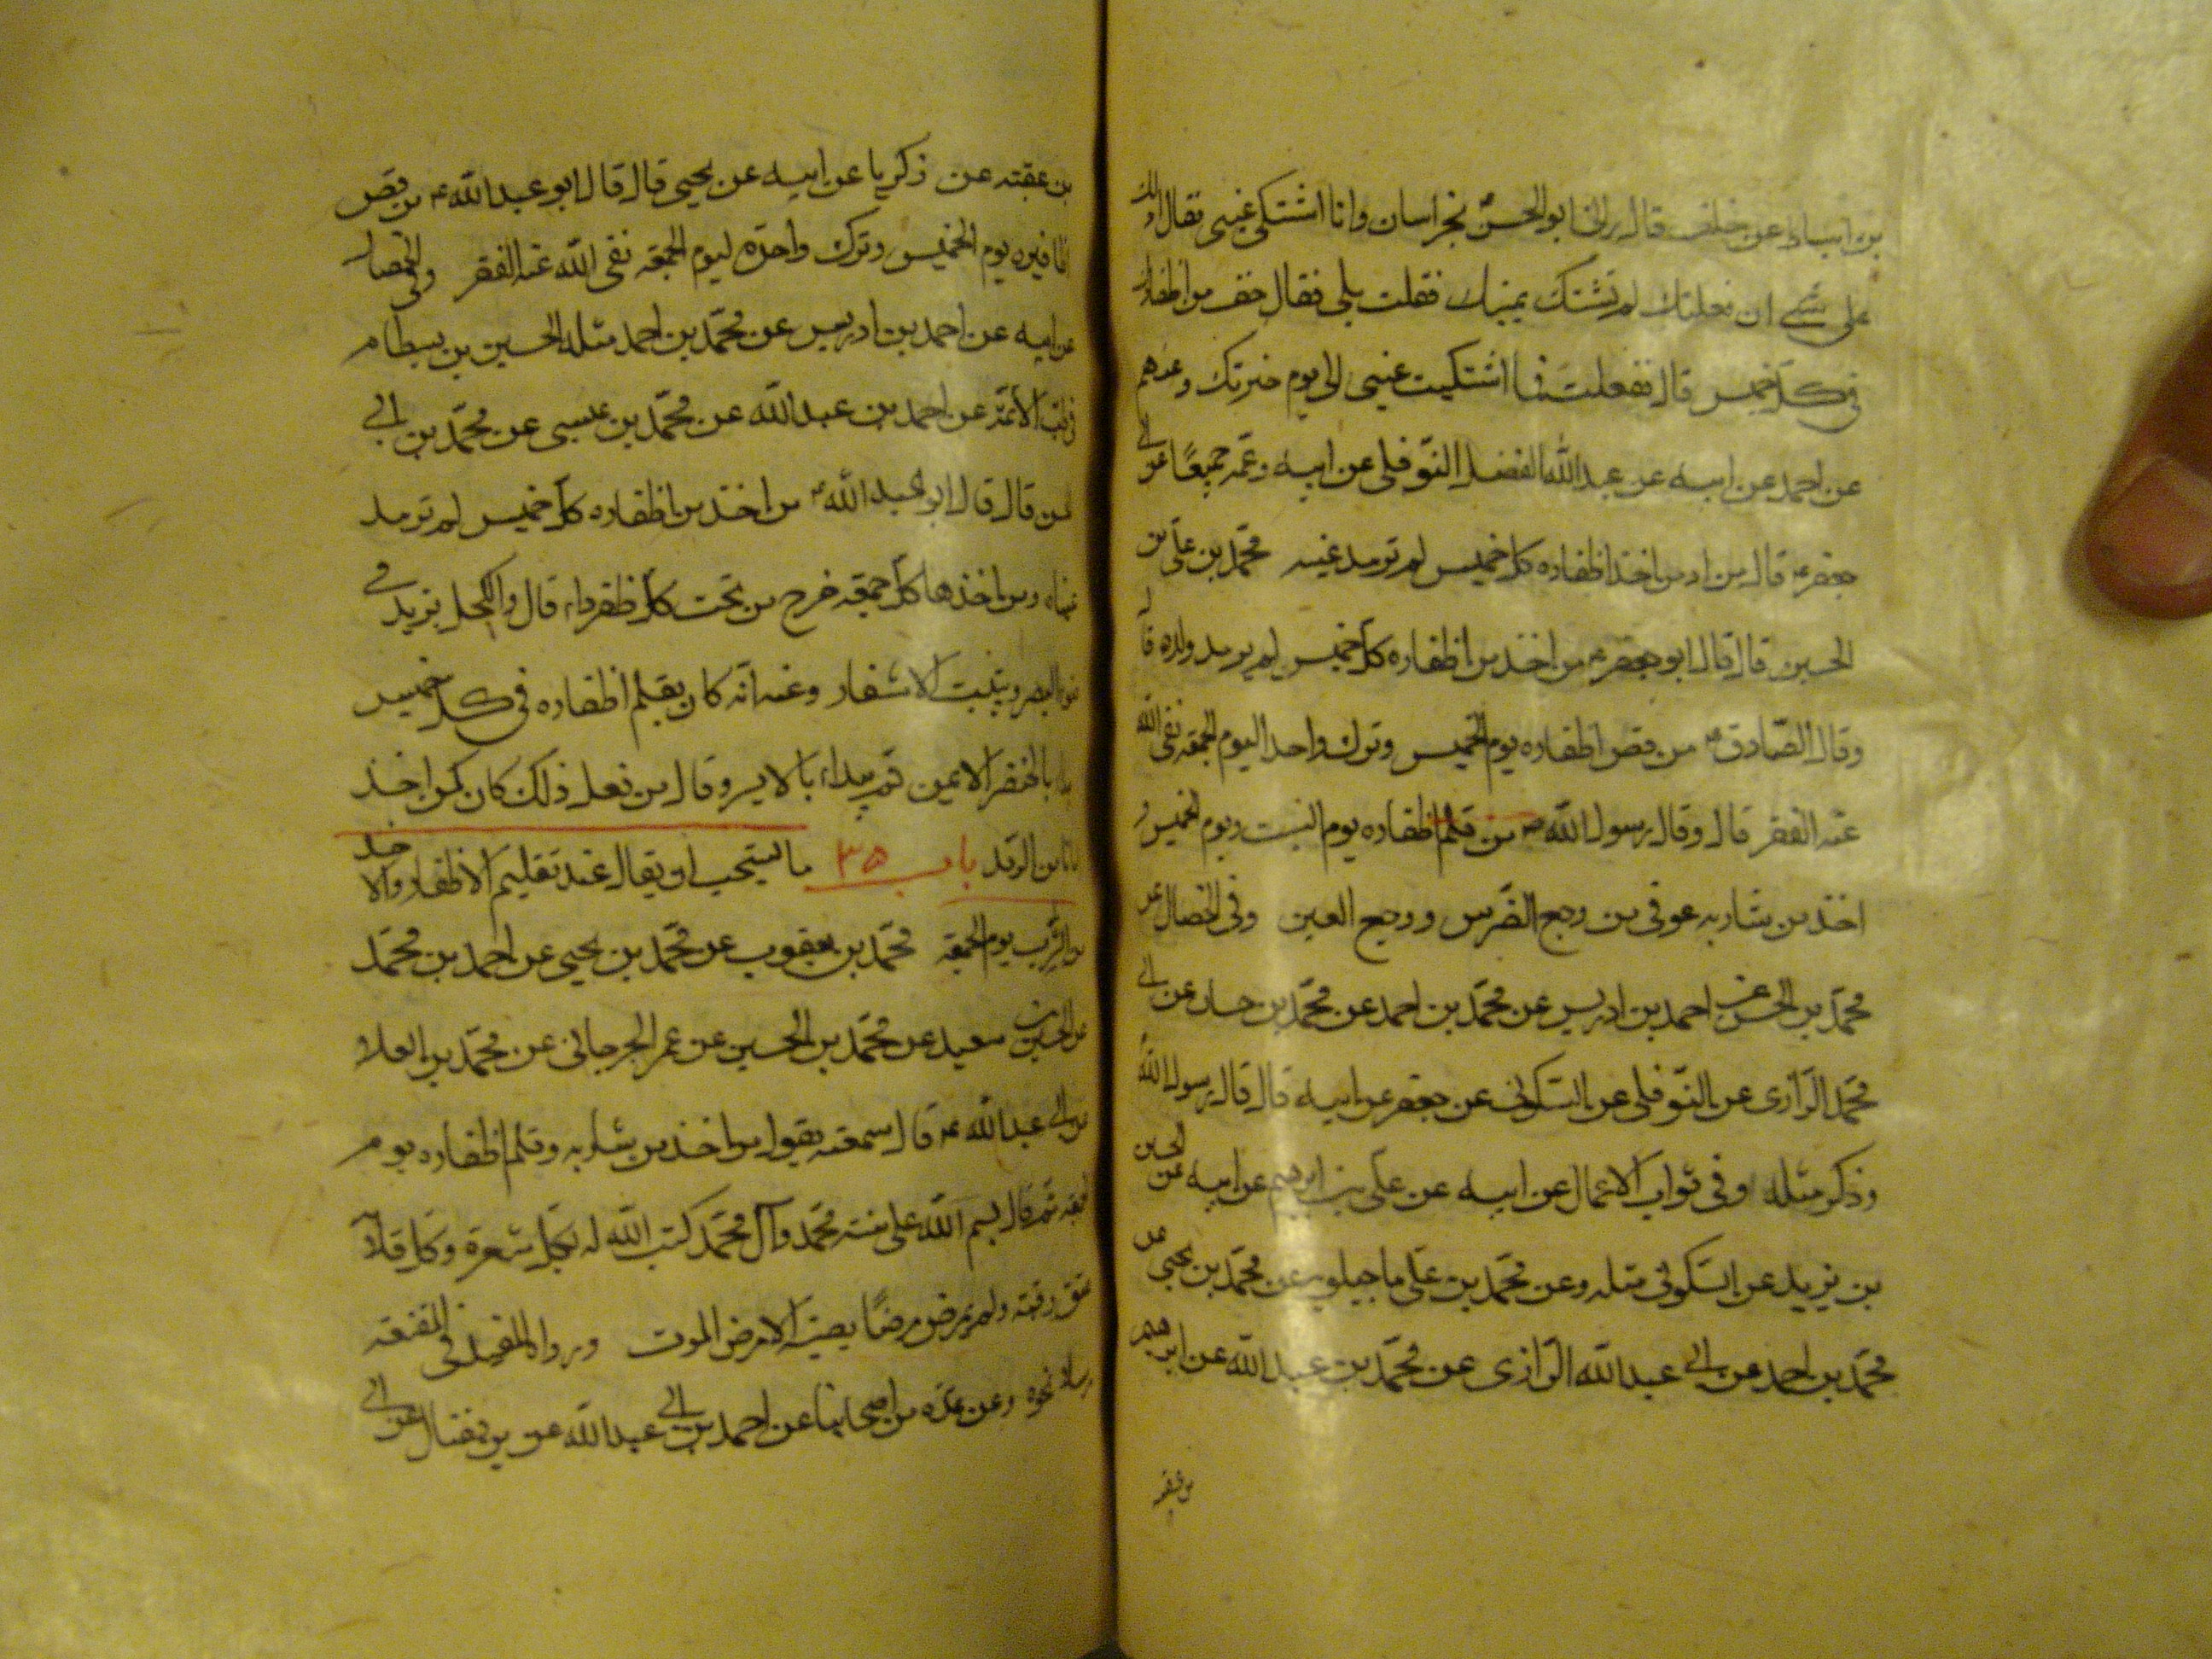 بن اسباط عن خلف قال رانى ابو الحسن بخراسان وانا اشتكى عينى فقال ادلك
على شئ ان فعلته لم تشتك عينك فقلت بلى فقال خذ من اظفارك
فى كل خميس قال ففعلت فما اشتكيت عينى الى يوم خبرتك وعدهم
عن احمد عن ابيه عن عبد الله الفضل النوفلى عن ابيه وعمه جميعا عن ابى
جعفر ع قال من ادمن اخذ اظفاره كل خميس لم ترمد عينه محمد بن على بن
الحسين قال قال ابو جعفر ع من اخذ من اظفاره كل خميس لم يرمد ولده قال
وقال الصادق ع من قص اظفاره يوم الخميس وترك واحدا ليوم الجمعه نفى الله
عنه الفقر قال وقال رسول الله ص من قلم اظفاره يوم السبت ويوم الخميس و
اخذ من شاربه عوفى من وجع الضرس ووجع العين وفى الخصال عن
محمد بن الحسن عن احمد بن ادريس عن محمد بن احمد عن محمد بن حسان عن ابى
محمد الرازى عن النوفلى عن السكونى عن جعفر عن ابيه قال قال رسول الله
وذكر مثله وفى ثواب الاعمال عن ابيه عن على بن ابرهيم عن ابيه عن الحسين
بن يزيد عن السكونى مثله وعن محمد بن على ماجيلويه عن محمد بن يحيى عن
محمد بن احمد عن ابى عبد الله الرازى عن محمد بن عبد الله عن ابرهيم
بن عقبه
بن عقبه عن زكريا عن ابيه عن يحيى قال قال ابو عبد الله ع من قص
اظافيره يوم الخميس وترك واحدة ليوم الجمعه نفى الله عنه الفقر وفى الخصال
عن ابيه عن احمد بن ادريس عن محمد بن احمد مثله الحسين بن بسطام
فى طب الائمه عن احمد بن عبد الله عن محمد بن عيسى عن محمد بن ابى
الحسن قال قال ابو عبد الله ع من اخذ من اظفاره كل خميس لم ترمد
عيناه ومن اخذها كل جمعه خرج من تحت كل ظفر داء قال والكحل يزيد فى
ضوء البصر وينبت الاشفار وعنه انه كان يقلم اظفاره فى كل خميس
يبدا بالخنصر الايمن ثم يبدا بالايسر وقال من فعل ذلك كان كمن اخذ
امانا من الرمد باب ٣٥ ما يستحب ان يقال عند تقليم الاظفار والاخذ
من الشارب يوم الجمعه محمد بن يعقوب عن محمد بن يحيى عن احمد بن محمد
عن الحسين بن سعيد عن محمد بن الحسين عن عمر الجرجانى عن محمد بن العلا
عن ابى عبد الله ع قال سمعته يقول من اخذ من شاربه وقلم اظفاره يوم
الجمعه ثم قال بسم الله على سنه محمد وآل محمد كتب الله له بكل شعرة وكل قلامة
عتق رقبه ولم يمرض مرضا يصيبه الا مرض الموت ورواه المفيد فى المقنعه
مرسلا نحوه وعن عدّه من اصحابنا عن احمد بن ابى عبد الله عن ابن فضال عن ابى